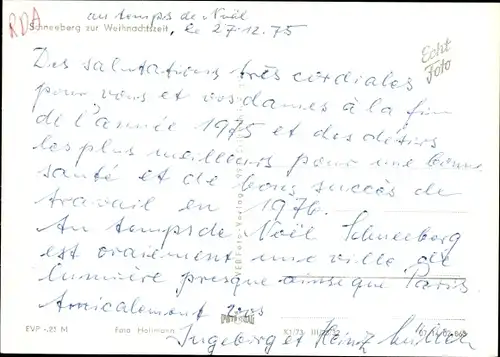 RDA
au temps de Noël
Schneeberg zur Weihnachtszeit, le 27.12.75
Echt
Foto
Des salutations très cordiales
pour vous et vos dames à la fin
de l'année 1975 et des désirs
les plus meilleurs pour une bonne
santé et de bons succès de
travail en 1976.
Au temps de Noël Schneeberg
est vraiement une ville de
lumière presque ainsique Paris.
Amicalement vos
Ingeborg et Heinz
EVP -,25 M Foto Hoffmann